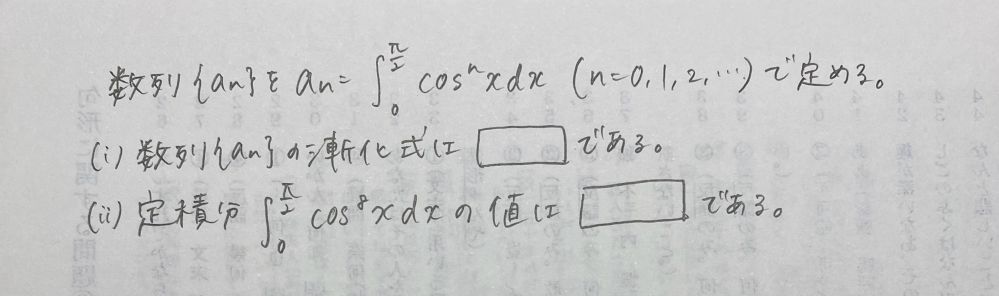 数列{an}を an=∫₀^{π/2} cosⁿxdx (n=0,1,2,…)で定める。
(i) 数列{an}の漸化式は □ である。
(ii) 定積分 ∫₀^{π/2} cos⁸xdxの値は □ である。